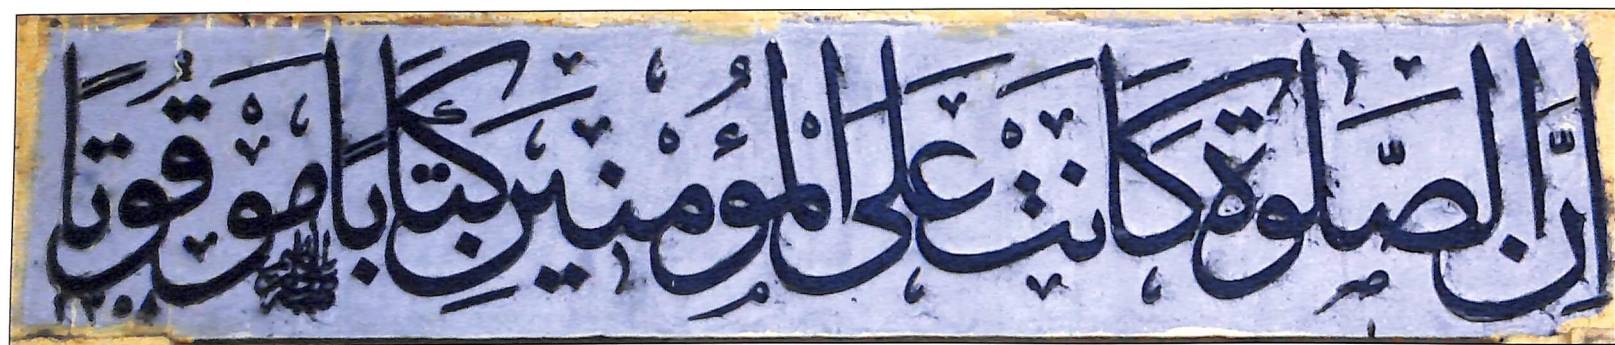 إِنَّ الصَّلٰوةَ كَانَتْ عَلَى الْمُؤْمِنِينَ كِتَابًا مَوْقُوتًا